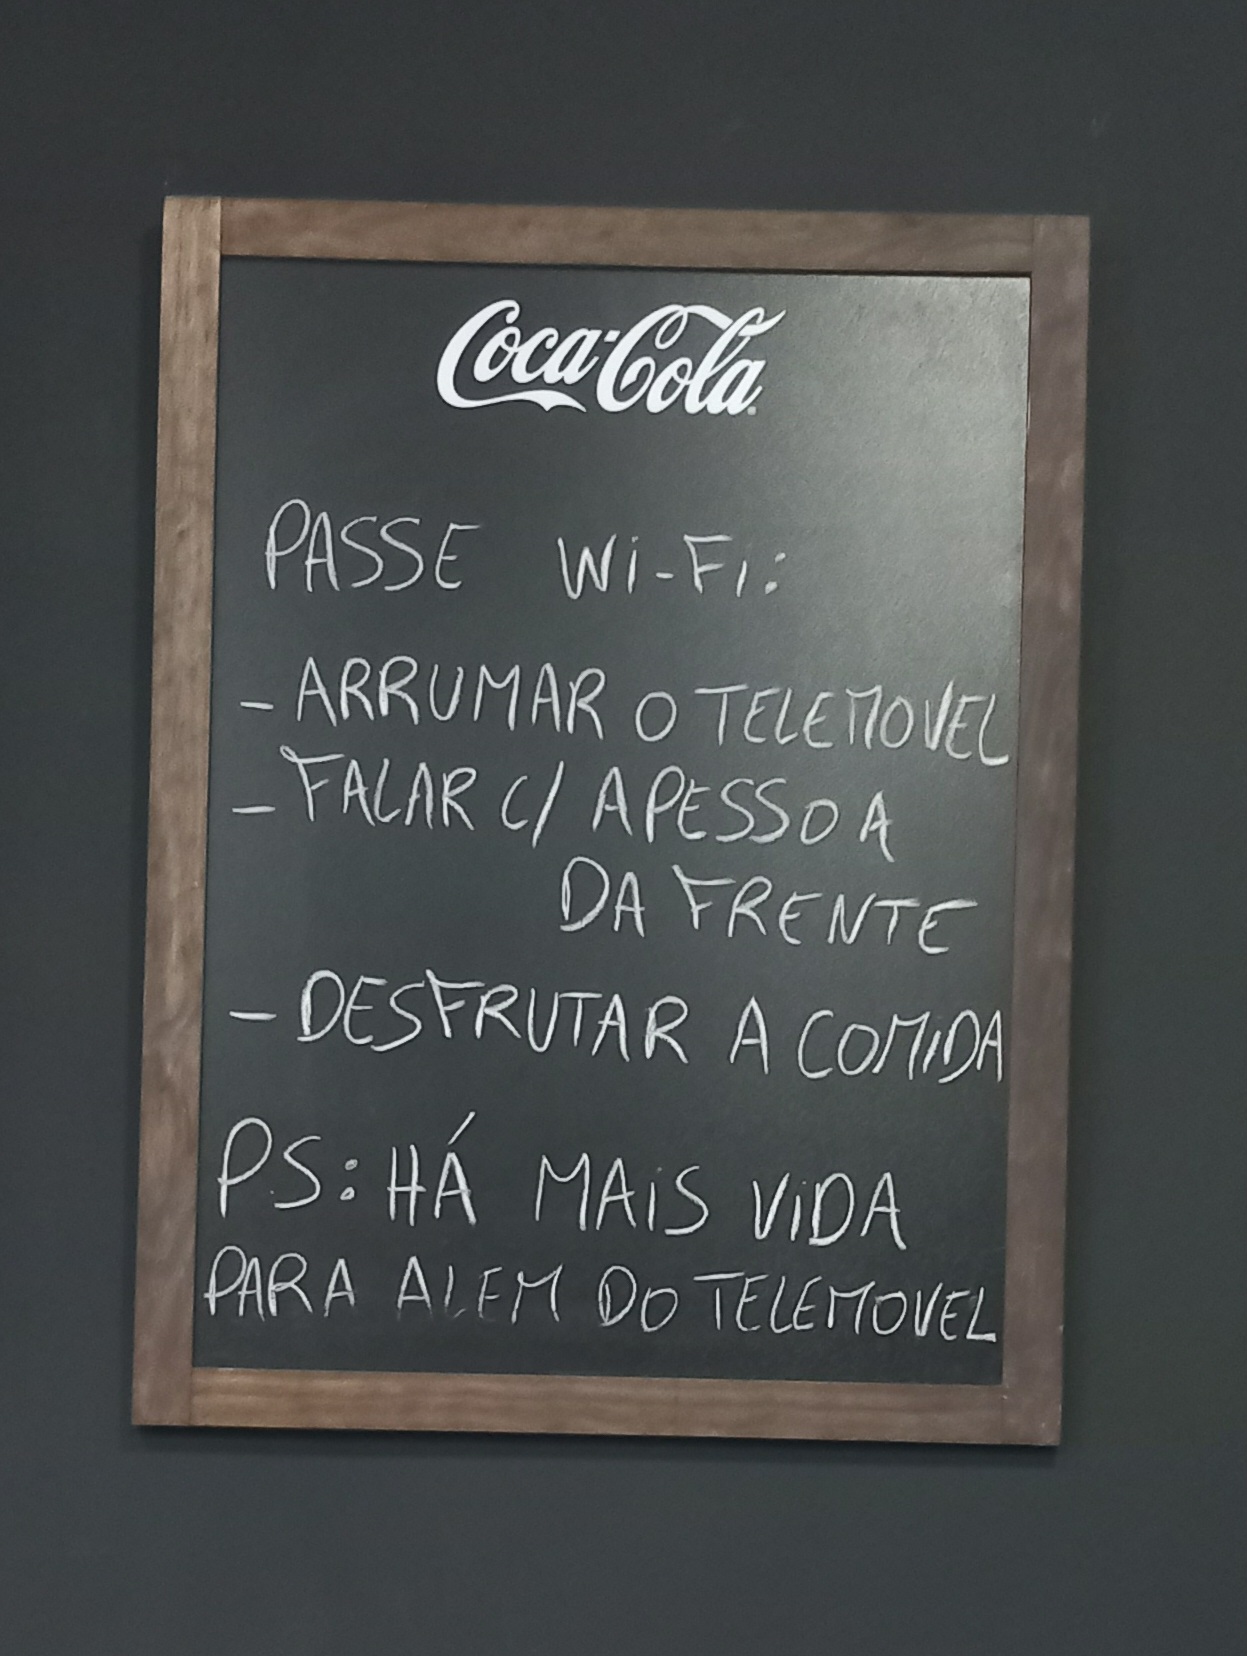 Coca-Cola
PASSE Wi-Fi:
- ARRUMAR O TELEMOVEL
- FALAR C/ A PESSOA
DA FRENTE
- DESFRUTAR A COMiDA
PS: HÁ MAiS ViDA
PARA ALEM DO TELEMOVEL